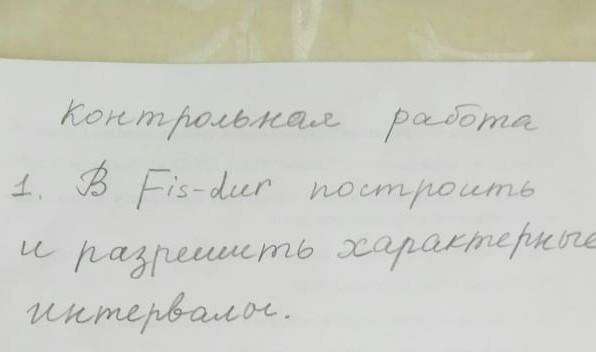 контрольная работа
1. В Fis-dur построить
и разрешить характерные
интервалы.